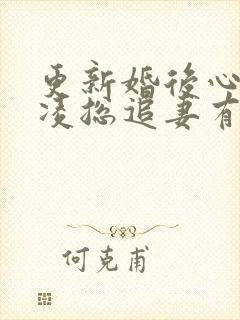 更新婚后心
凌总追妻有
何克甫